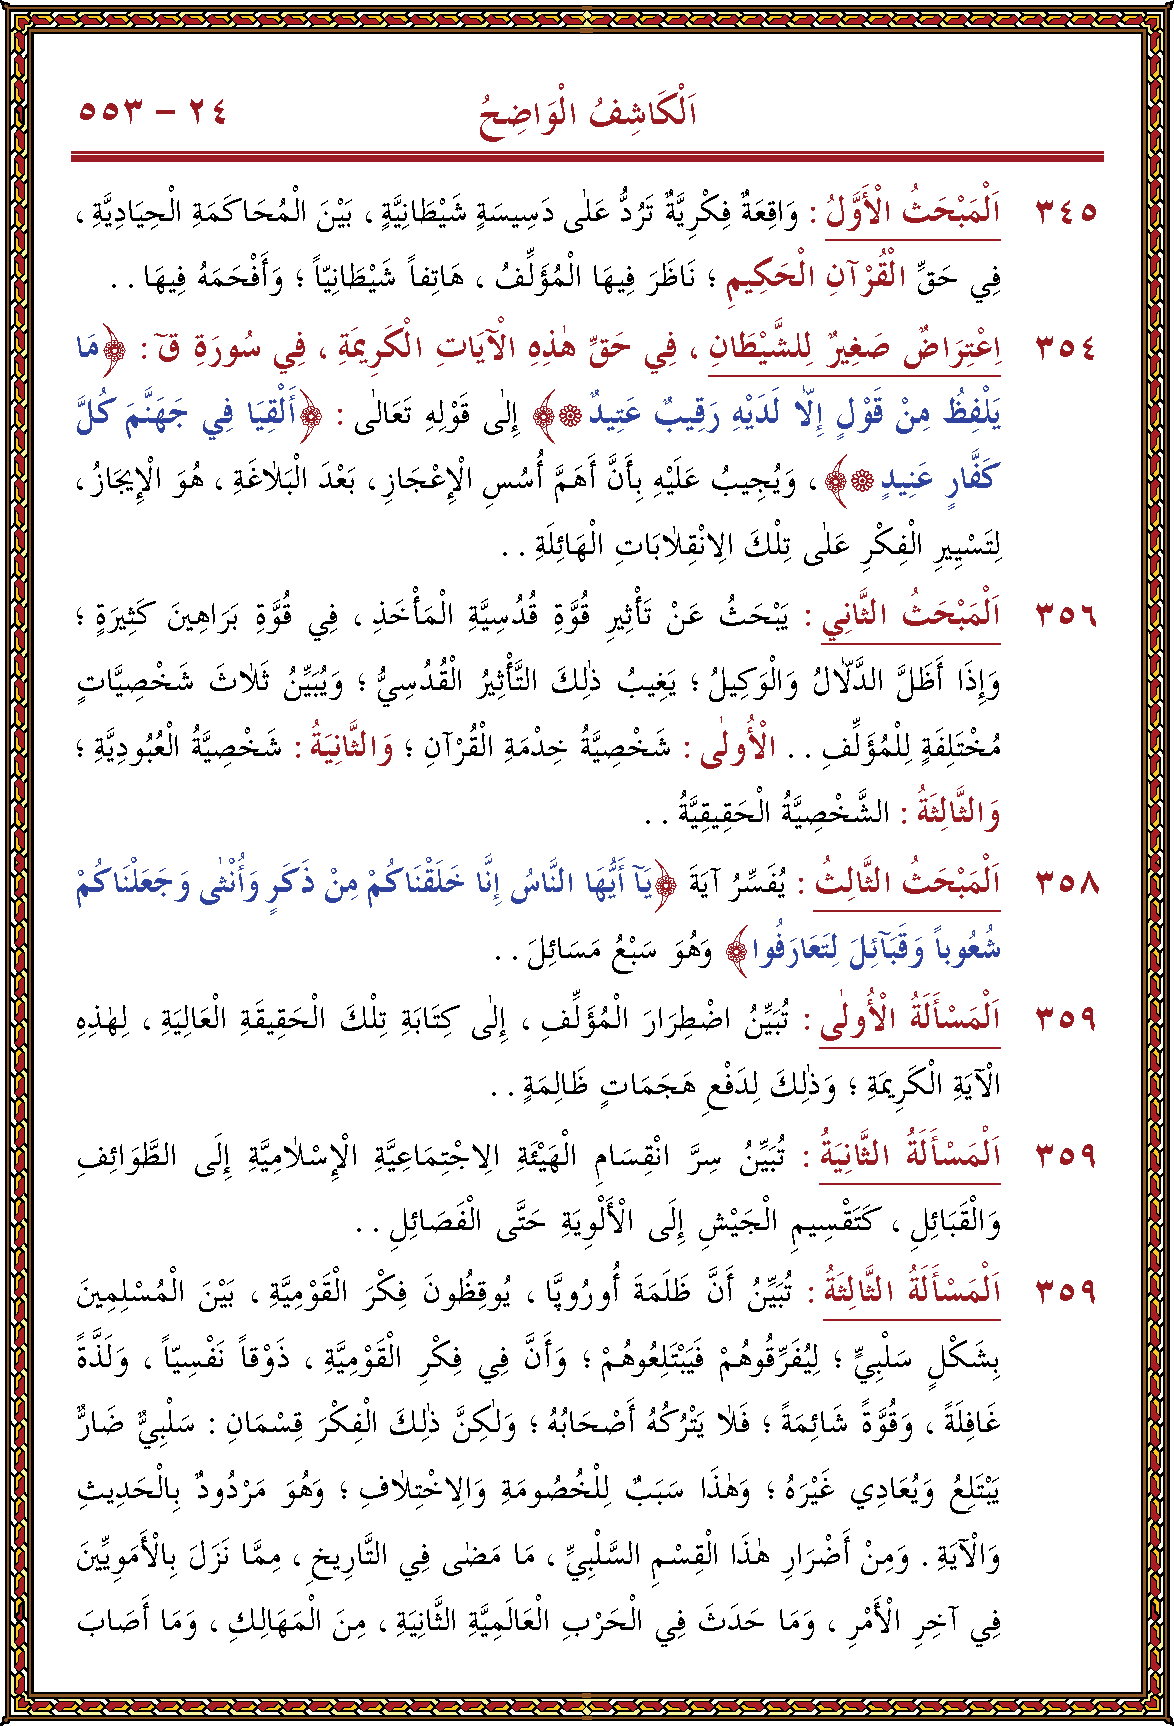 اَلْكَاشِفُ الْوَاضِحُ ٢٤ - ٥٥٣
٣٤٥ اَلْمَبْحَثُ الْأَوَّلُ : وَاقِعَةٌ فِكْرِيَّةٌ تَرُدُّ عَلٰى دَسِيسَةٍ شَيْطَانِيَّةٍ ، بَيْنَ الْمُحَاكَمَةِ الْحِيَادِيَّةِ ،
فِي حَقِّ الْقُرْآنِ الْحَكِيمِ ؛ نَاظَرَ فِيهَا الْمُؤَلِّفُ ، هَاتِفاً شَيْطَانِيّاً ؛ وَأَفْحَمَهُ فِيهَا . .
٣٥٤ اِعْتِرَاضٌ صَغِيرٌ لِلشَّيْطَانِ ، فِي حَقِّ هٰذِهِ الْآيَاتِ الْكَرِيمَةِ ، فِي سُورَةِ قٓ : ﴿مَا
يَلْفِظُ مِنْ قَوْلٍ إِلَّا لَدَيْهِ رَقِيبٌ عَتِيدٌ ۞﴾ إِلٰى قَوْلِهِ تَعَالٰى : ﴿أَلْقِيَا فِي جَهَنَّمَ كُلَّ
كَفَّارٍ عَنِيدٍ ۞﴾ ، وَيُجِيبُ عَلَيْهِ بِأَنَّ أَهَمَّ أُسُسِ الْإِعْجَازِ ، بَعْدَ الْبَلَاغَةِ ، هُوَ الْإِيجَازُ ،
لِتَسْيِيرِ الْفِكْرِ عَلٰى تِلْكَ الِانْقِلَابَاتِ الْهَائِلَةِ . .
٣٥٦ اَلْمَبْحَثُ الثَّانِي : يَبْحَثُ عَنْ تَأْثِيرِ قُوَّةِ قُدُسِيَّةِ الْمَأْخَذِ ، فِي قُوَّةِ بَرَاهِينَ كَثِيرَةٍ ؛
وَإِذَا أَظَلَّ الدَّلَّالُ وَالْوَكِيلُ ؛ يَغِيبُ ذٰلِكَ التَّأْثِيرُ الْقُدُسِيُّ ؛ وَيُبَيِّنُ ثَلَاثَ شَخْصِيَّاتٍ
مُخْتَلِفَةٍ لِلْمُؤَلِّفِ . . الْأُولٰى : شَخْصِيَّةُ خِدْمَةِ الْقُرْآنِ ؛ وَالثَّانِيَةُ : شَخْصِيَّةُ الْعُبُودِيَّةِ ؛
وَالثَّالِثَةُ : الشَّخْصِيَّةُ الْحَقِيقِيَّةُ . .
٣٥٨ اَلْمَبْحَثُ الثَّالِثُ : يُفَسِّرُ آيَةَ ﴿يَآ أَيُّهَا النَّاسُ إِنَّا خَلَقْنَاكُمْ مِنْ ذَكَرٍ وَأُنْثٰى وَجَعَلْنَاكُمْ
شُعُوباً وَقَبَآئِلَ لِتَعَارَفُوا﴾ وَهُوَ سَبْعُ مَسَائِلَ . .
٣٥٩ اَلْمَسْأَلَةُ الْأُولٰى : تُبَيِّنُ اضْطِرَارَ الْمُؤَلِّفِ ، إِلٰى كِتَابَةِ تِلْكَ الْحَقِيقَةِ الْعَالِيَةِ ، لِهٰذِهِ
الْآيَةِ الْكَرِيمَةِ ؛ وَذٰلِكَ لِدَفْعِ هَجَمَاتٍ ظَالِمَةٍ . .
٣٥٩ اَلْمَسْأَلَةُ الثَّانِيَةُ : تُبَيِّنُ سِرَّ انْقِسَامِ الْهَيْئَةِ الِاجْتِمَاعِيَّةِ الْإِسْلَامِيَّةِ إِلَى الطَّوَائِفِ
وَالْقَبَائِلِ ، كَتَقْسِيمِ الْجَيْشِ إِلَى الْأَلْوِيَةِ حَتَّى الْفَصَائِلِ . .
٣٥٩ اَلْمَسْأَلَةُ الثَّالِثَةُ : تُبَيِّنُ أَنَّ ظَلَمَةَ أُورُوپَّا ، يُوقِظُونَ فِكْرَ الْقَوْمِيَّةِ ، بَيْنَ الْمُسْلِمِينَ
بِشَكْلٍ سَلْبِيٍّ ؛ لِيُفَرِّقُوهُمْ فَيَبْتَلِعُوهُمْ ؛ وَأَنَّ فِي فِكْرِ الْقَوْمِيَّةِ ، ذَوْقاً نَفْسِيّاً ، وَلَذَّةً
غَافِلَةً ، وَقُوَّةً شَائِمَةً ؛ فَلَا يَتْرُكُهُ أَصْحَابُهُ ؛ وَلٰكِنَّ ذٰلِكَ الْفِكْرَ قِسْمَانِ : سَلْبِيٌّ ضَارٌّ
يَبْتَلِعُ وَيُعَادِي غَيْرَهُ ؛ وَهٰذَا سَبَبٌ لِلْخُصُومَةِ وَالِاخْتِلَافِ ؛ وَهُوَ مَرْدُودٌ بِالْحَدِيثِ
وَالْآيَةِ . وَمِنْ أَضْرَارِ هٰذَا الْقِسْمِ السَّلْبِيِّ ، مَا مَضٰى فِي التَّارِيخِ ، مِمَّا نَزَلَ بِالْأَمَوِيِّينَ
فِي آخِرِ الْأَمْرِ ، وَمَا حَدَثَ فِي الْحَرْبِ الْعَالَمِيَّةِ الثَّانِيَةِ ، مِنَ الْمَهَالِكِ ، وَمَا أَصَابَ